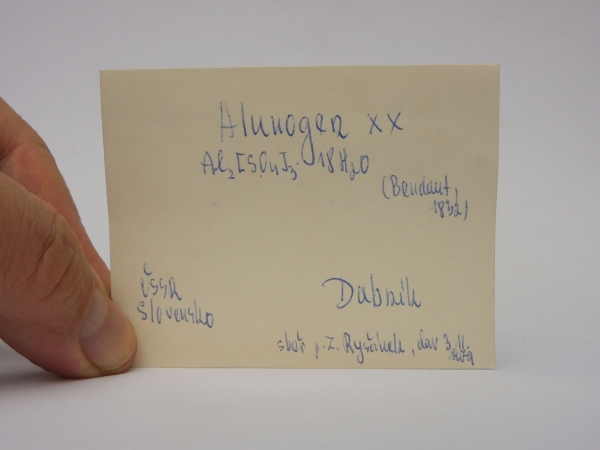 Alunogen xx
Al2[SO4]3. 18H2O
(Beudant,
1832)
ČSSR
Slovensko
Dubník
sběr p. Z. Ryšánek, dar 3.11.